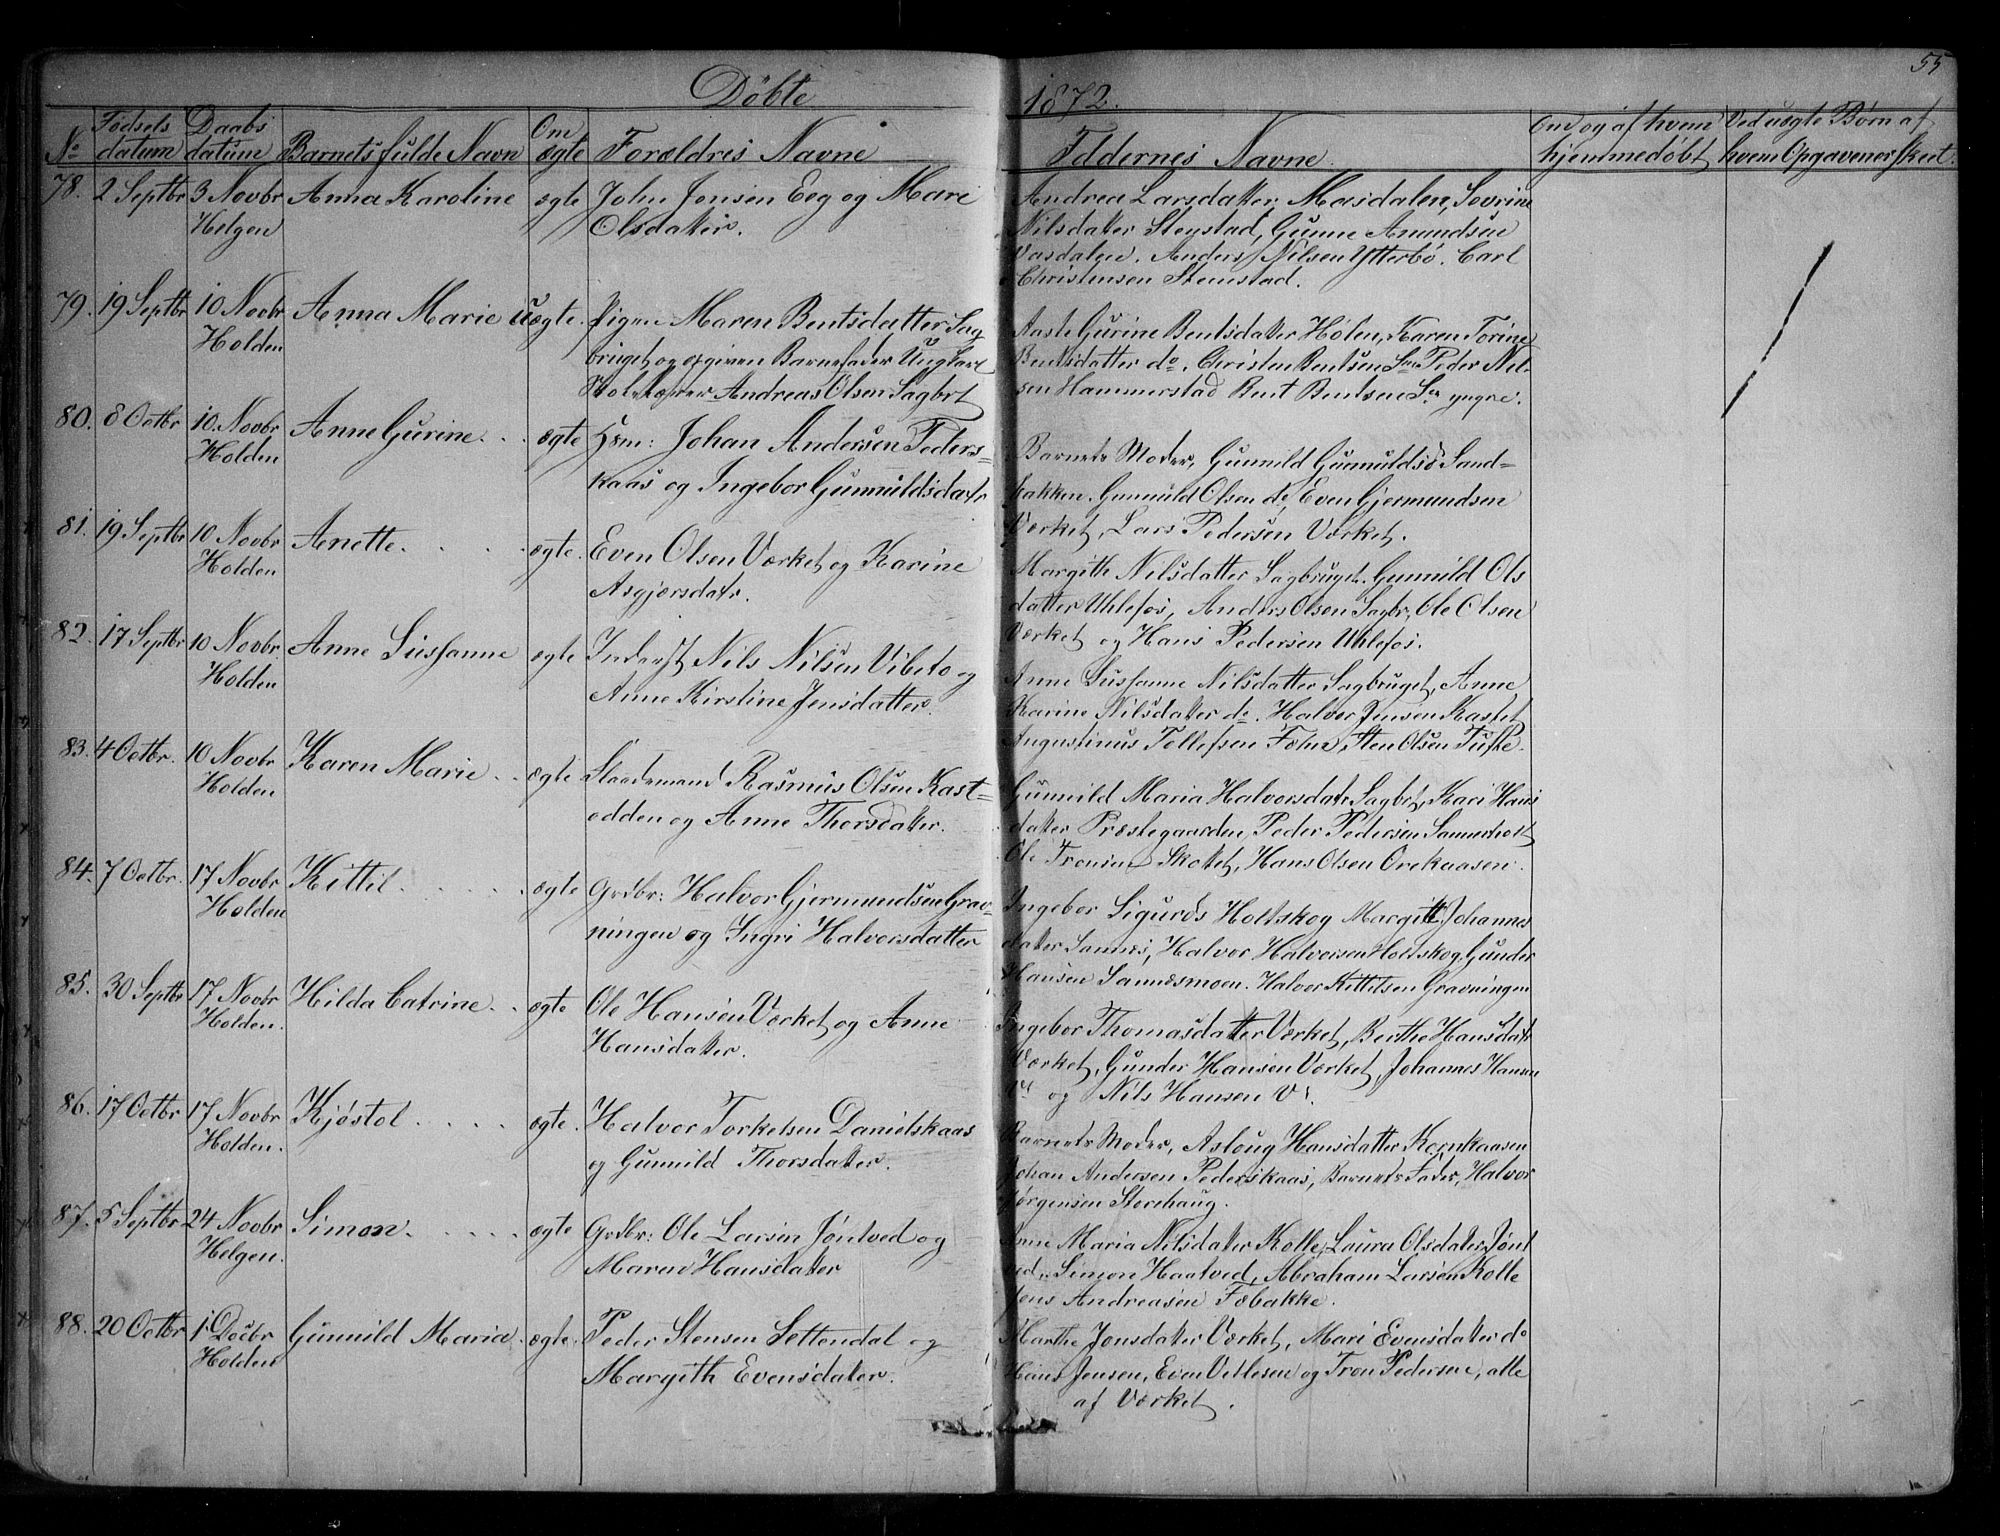 55
Døbte 1872.
No Fødsels datum Daabs datum Barnets fulde Navn Om ægte Forældres Navne Fddernes Navne Om og af hvem hjemmedøbt Ved uægte Børn af hvem Opgaven er skeet.
78. 2 Septbr 3 Novbr Anna Karoline ægte John Jensen Eeg og Mari
Helgen Olsdatter.
Andrea Larsdatter Masdalen, Sevrine
Nilsdatter Stenstad, Gunne Amundsen
Vasdalen. Anders Nilsen Ytterbø. Carl
Christensen Stenstad.
79. 19 Septbr 10 Novbr Anna Marie uægte. Pigen Maren Bentsdatter Sag
Holden bruget og opgiven Barnefader Ungkarl
Andreas Olsen Sagbrt
Aaste Gurine Bentsdatter Holen, Karen Torine
Bentsdatter do. Christen Bentsen Peder Nil-
sen Hammerstad Bent Bentsen yngre.
80. 8 Octbr 10. Novbr Anne Gurine. ægte Hsm: Johan Andersen Peders-
Holden kaas og Ingebor Gunnuldsdatr
Barnets Moder, Gunnild Gunnuldsd Sand-
bakken. Gunnuld Olsen do, Even Gjermundsen
Værket, Lars Pedersen Værket.
81. 19 Septbr 10 Novbr Anette. ægte. Even Olsen Værket og Karine
Holden Asgjærsdatr.
Margith Nilsdatter Sagbruget. Gunnild Ols
datter Uhlefos, Anders Olsen Sagbr, Ole Olsen
Værket og Hans Pedersen Uhlefos.
82. 17 Septbr 10 Novbr Anne Sussanne ægte Inderst Nils Nilsen Vibeto og
Holden Anne Kirstine Jensdatter.
Anne Sussanne Nilsdatter Sagbruget, Anne
Karine Nilsdatter do. Halvor Jensen Kastet
Augustinus Tollefsen Sten Olsen Tufte.
83. 4 Octbr. 10 Novbr Karen Marie ægte Rasmus Olsen Kast-
Holden odden og Anne Thorsdatter.
Gunnild Maria Halvorsdatr Sagbrt, Kari Hans
datter Præstegaarden, Peder Pedersen Sannerholt
Ole Tronsen Skottet, Hans Olsen Orekaasen.
84. 7 Octbr. 17 Novbr Kittil. ægte Grdbr: Halvor Gjermundsen Grav-
Holden ningen og Ingri Halvorsdatter
Ingebor Sigurds Holtskog Margitt Johannes
datter Sannes, Halvor Halvorsen Holtskog. Gunder
Hansen Sannesmoen. Halvor Kittilsen Gravningen
85. 30 Septbr 17 Novbr Hilda Catrine. ægte Ole Hansen Værket og Anne
Holden. Hansdatter.
Ingebor Thomasdatter Værket, Berthe Hansdatr
Værket, Gunder Hansen Værket, Johannes Hansen
Vt og Nils Hansen Vt.
86. 17 Octbr 17 Novbr Kjøstol ægte. Halvor Torkelsen Danielskaas
Holden. og Gunnild Thorsdatter.
Barnets Moder, Asloug Hansdatter Kornkaasen
Johan Andersen Pederskaas, Barnets Fader, Halvor
Jørgensen Storehaug.
87. 5 Septbr 24 Novbr Simon. ægte Grdbr: Ole Larsen Jøntved og
Helgen. Maren Hansdatter
Anne Maria Nilsdatter Kolle, Laura Olsdatter Jønt
ved, Simon Haatved, Abraham Larsen Kolle
Jens Andreasen Fæbakke.
88. 20 Octbr 1 Decbr Gunnild Maria. ægte. Peder Stensen Settendal og
Holden Margith Evensdatter.
Marthe Jonsdatter Værket, Mari Evensdatter do
Hans Jensen, Even Vetlesen og Tron Pedersen, alle
af Værket.